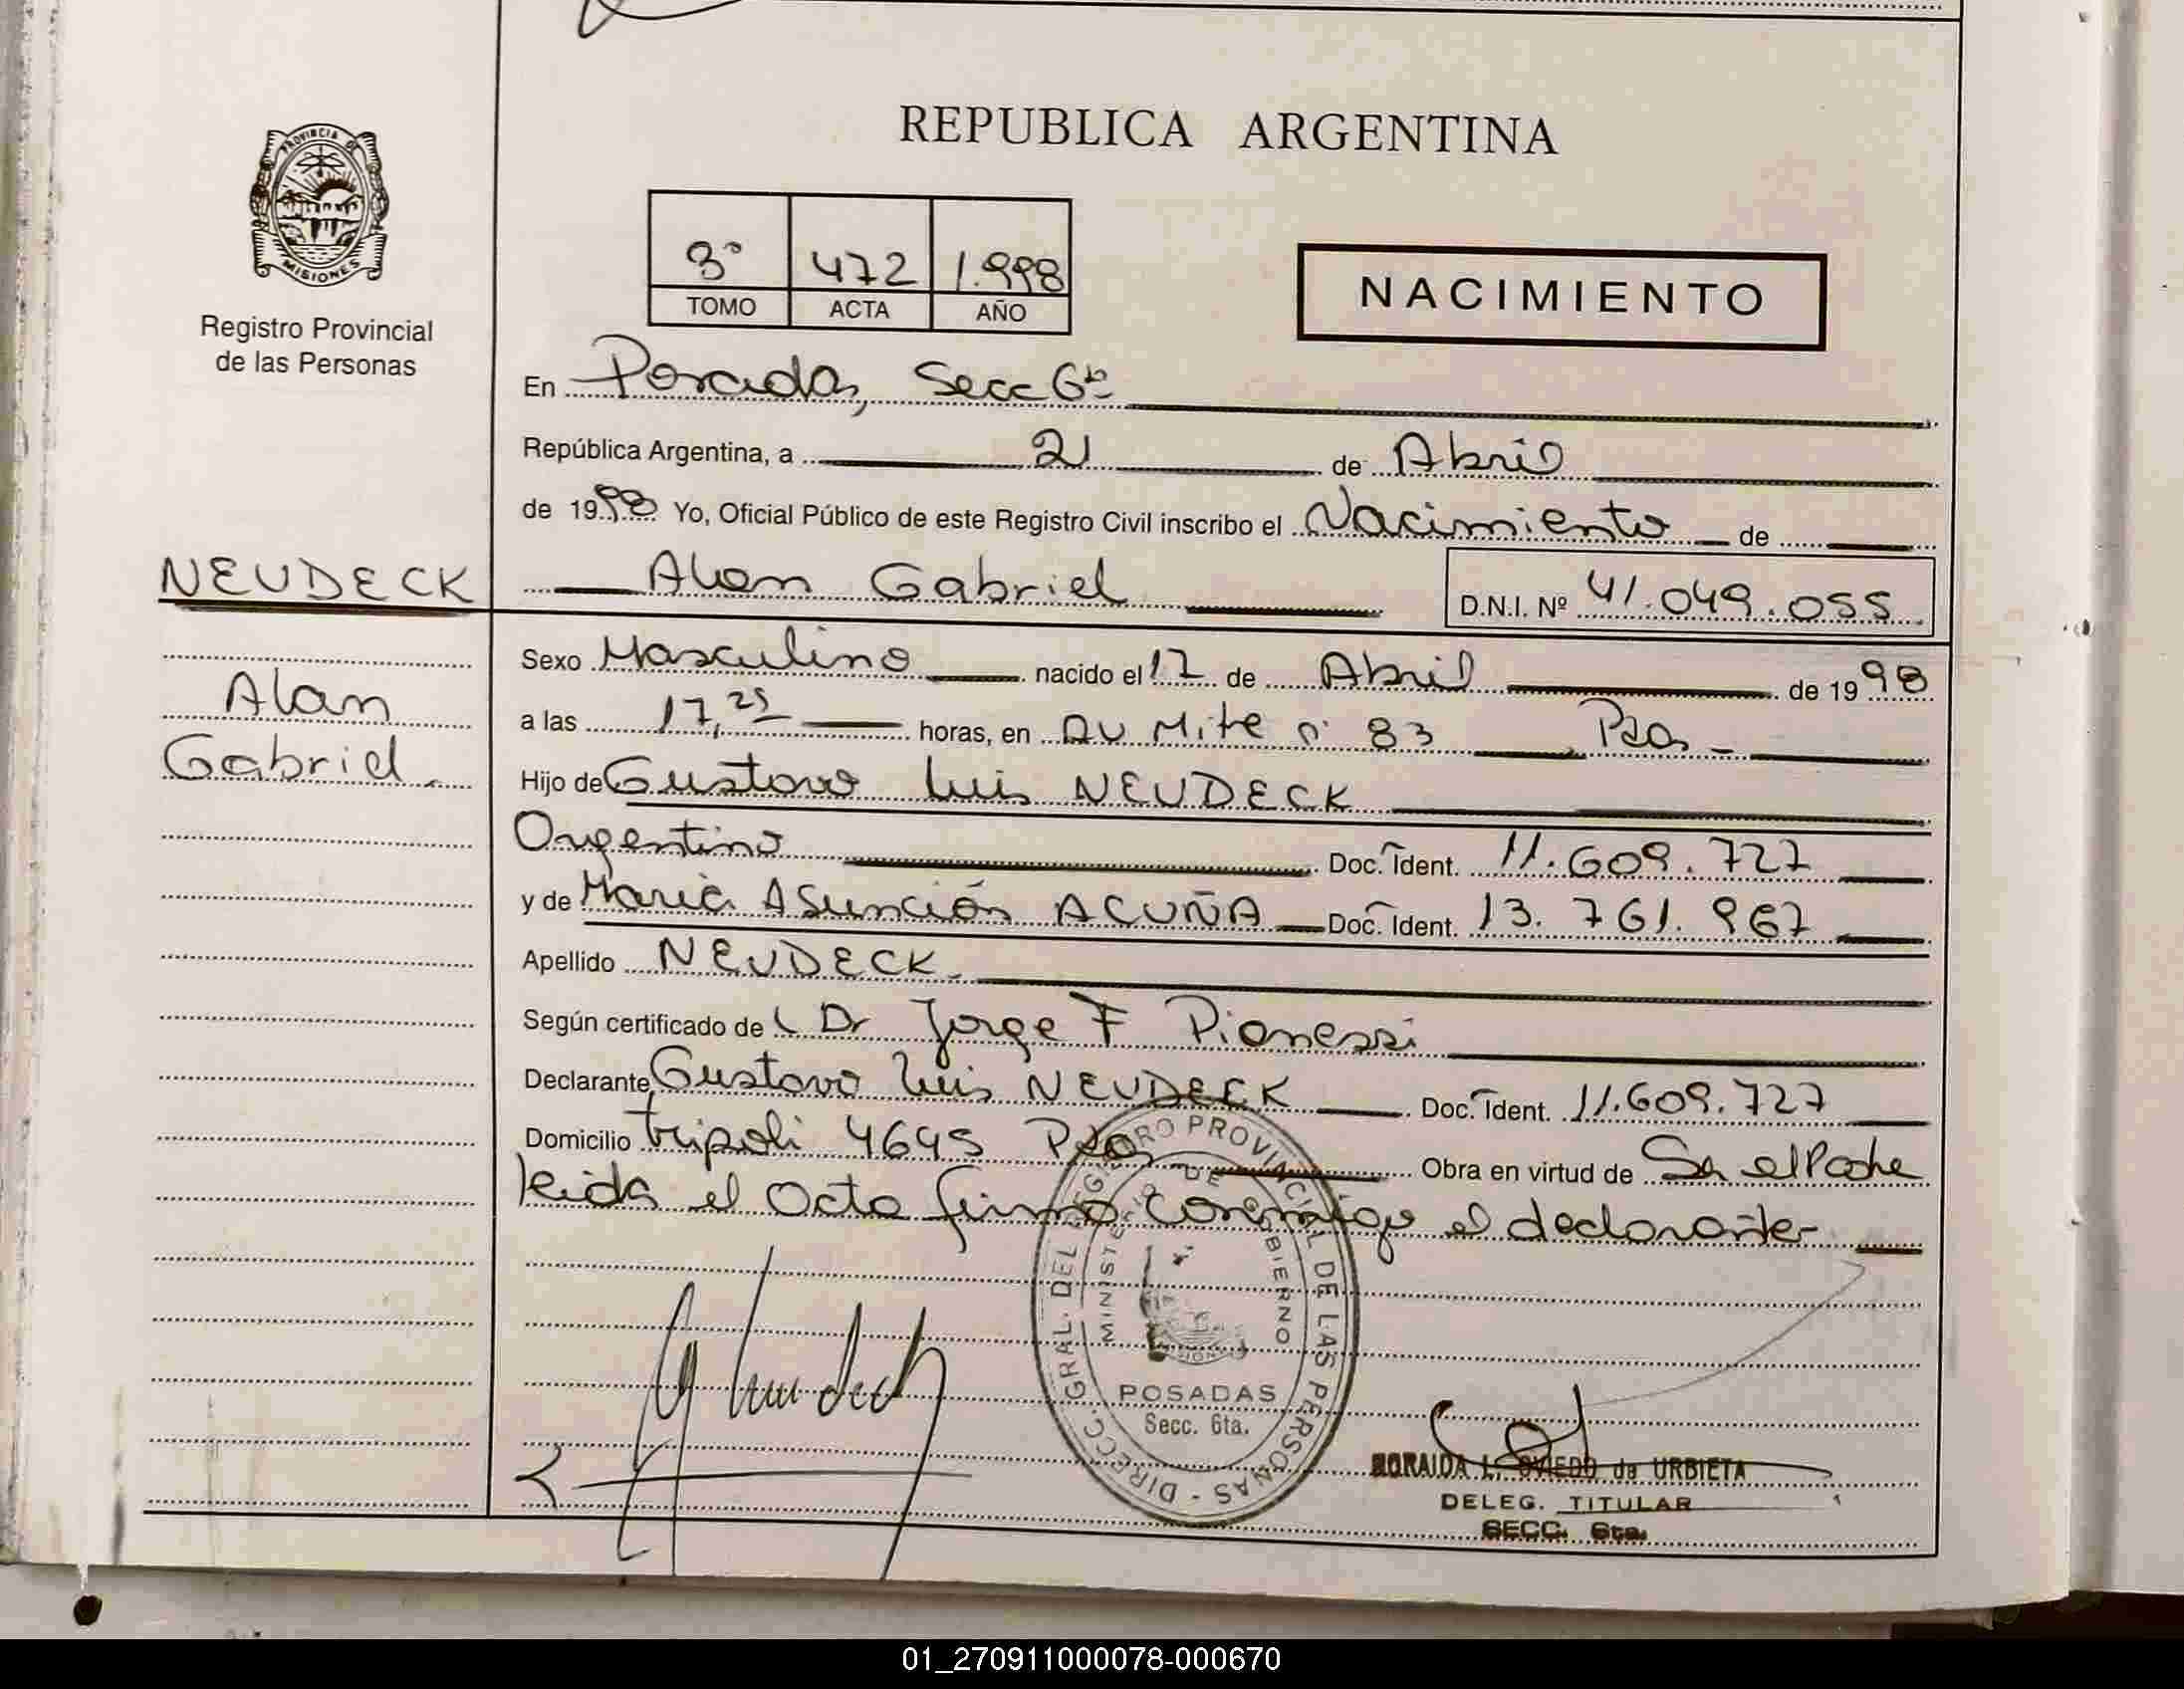 REPUBLICA ARGENTINA
PROVINCIA DE
MISIONES
Registro Provincial
de las Personas
3° 472 1.998
TOMO ACTA AÑO
NACIMIENTO
En Posadas, Secc 6ta
República Argentina, a 21 de Abril
de 1998 Yo, Oficial Público de este Registro Civil inscribo el Nacimiento de
NEUDECK
Alan Gabriel
D.N.I. Nº 41.049.055
Alan
Gabriel
Sexo Masculino nacido el 17 de Abril de 1998
a las 17,25 horas, en Av Mitre nº 83, Psas
Hijo de Gustavo Luis NEUDECK
Argentino Doc. Ident. 11.609.727
y de María Asunción ACUÑA Doc. Ident. 13.761.967
Apellido NEUDECK
Según certificado de Dr Jorge F
Declarante Gustavo Luis NEUDECK Doc. Ident. 11.609.727
Domicilio tripoli 4645 Psas Obra en virtud de Ser el Padre
leida el Acta firma conmigo el declarante
DIRECC. GRAL. DEL REGISTRO PROVINCIAL DE LAS PERSONAS
MINISTERIO DE GOBIERNO
POSADAS
Secc. 6ta.
ZORAIDA L. OVIEDO de URBIETA
DELEG. TITULAR
SECC. 6ta.
01_270911000078-000670